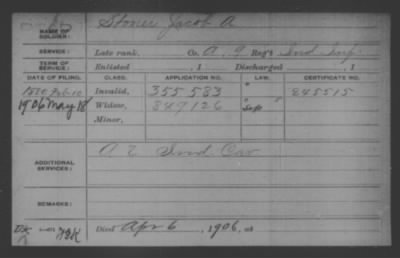 NAME OF SOLDIER: Stoner Jacob A
SERVICE: Late rank, Co. A, 9 Reg't Ind Inf.
TERM OF SERVICE: Enlisted , 1 Discharged , 1
DATE OF FILING. CLASS. APPLICATION NO. LAW. CERTIFICATE NO.
1880 Feb 10 Invalid, 355 583 " 245515
1906 May 18 Widow, 849,126 "
Minor,
ADDITIONAL SERVICES: A 2 Ind. Cav
REMARKS:
Died Apr 6, 1906, at